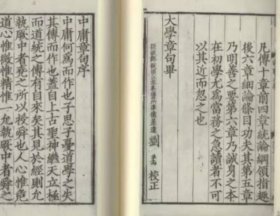 凡傳十章前四章統論綱領指趣
後六章細論條目功夫其第五章
乃明善之要第六章乃誠身之本
在初學尤爲當務之急讀者不可
以其近而忽之也
大學章句畢
劉 校正
中庸章句序
中庸何爲而作也子思子憂道學之失
其傳而作也蓋自上古聖神繼天立極
而道統之傳有自來矣其見於經則允
執厥中者堯之所以授舜也人心惟危
道心惟微惟精惟一允執厥中者舜之